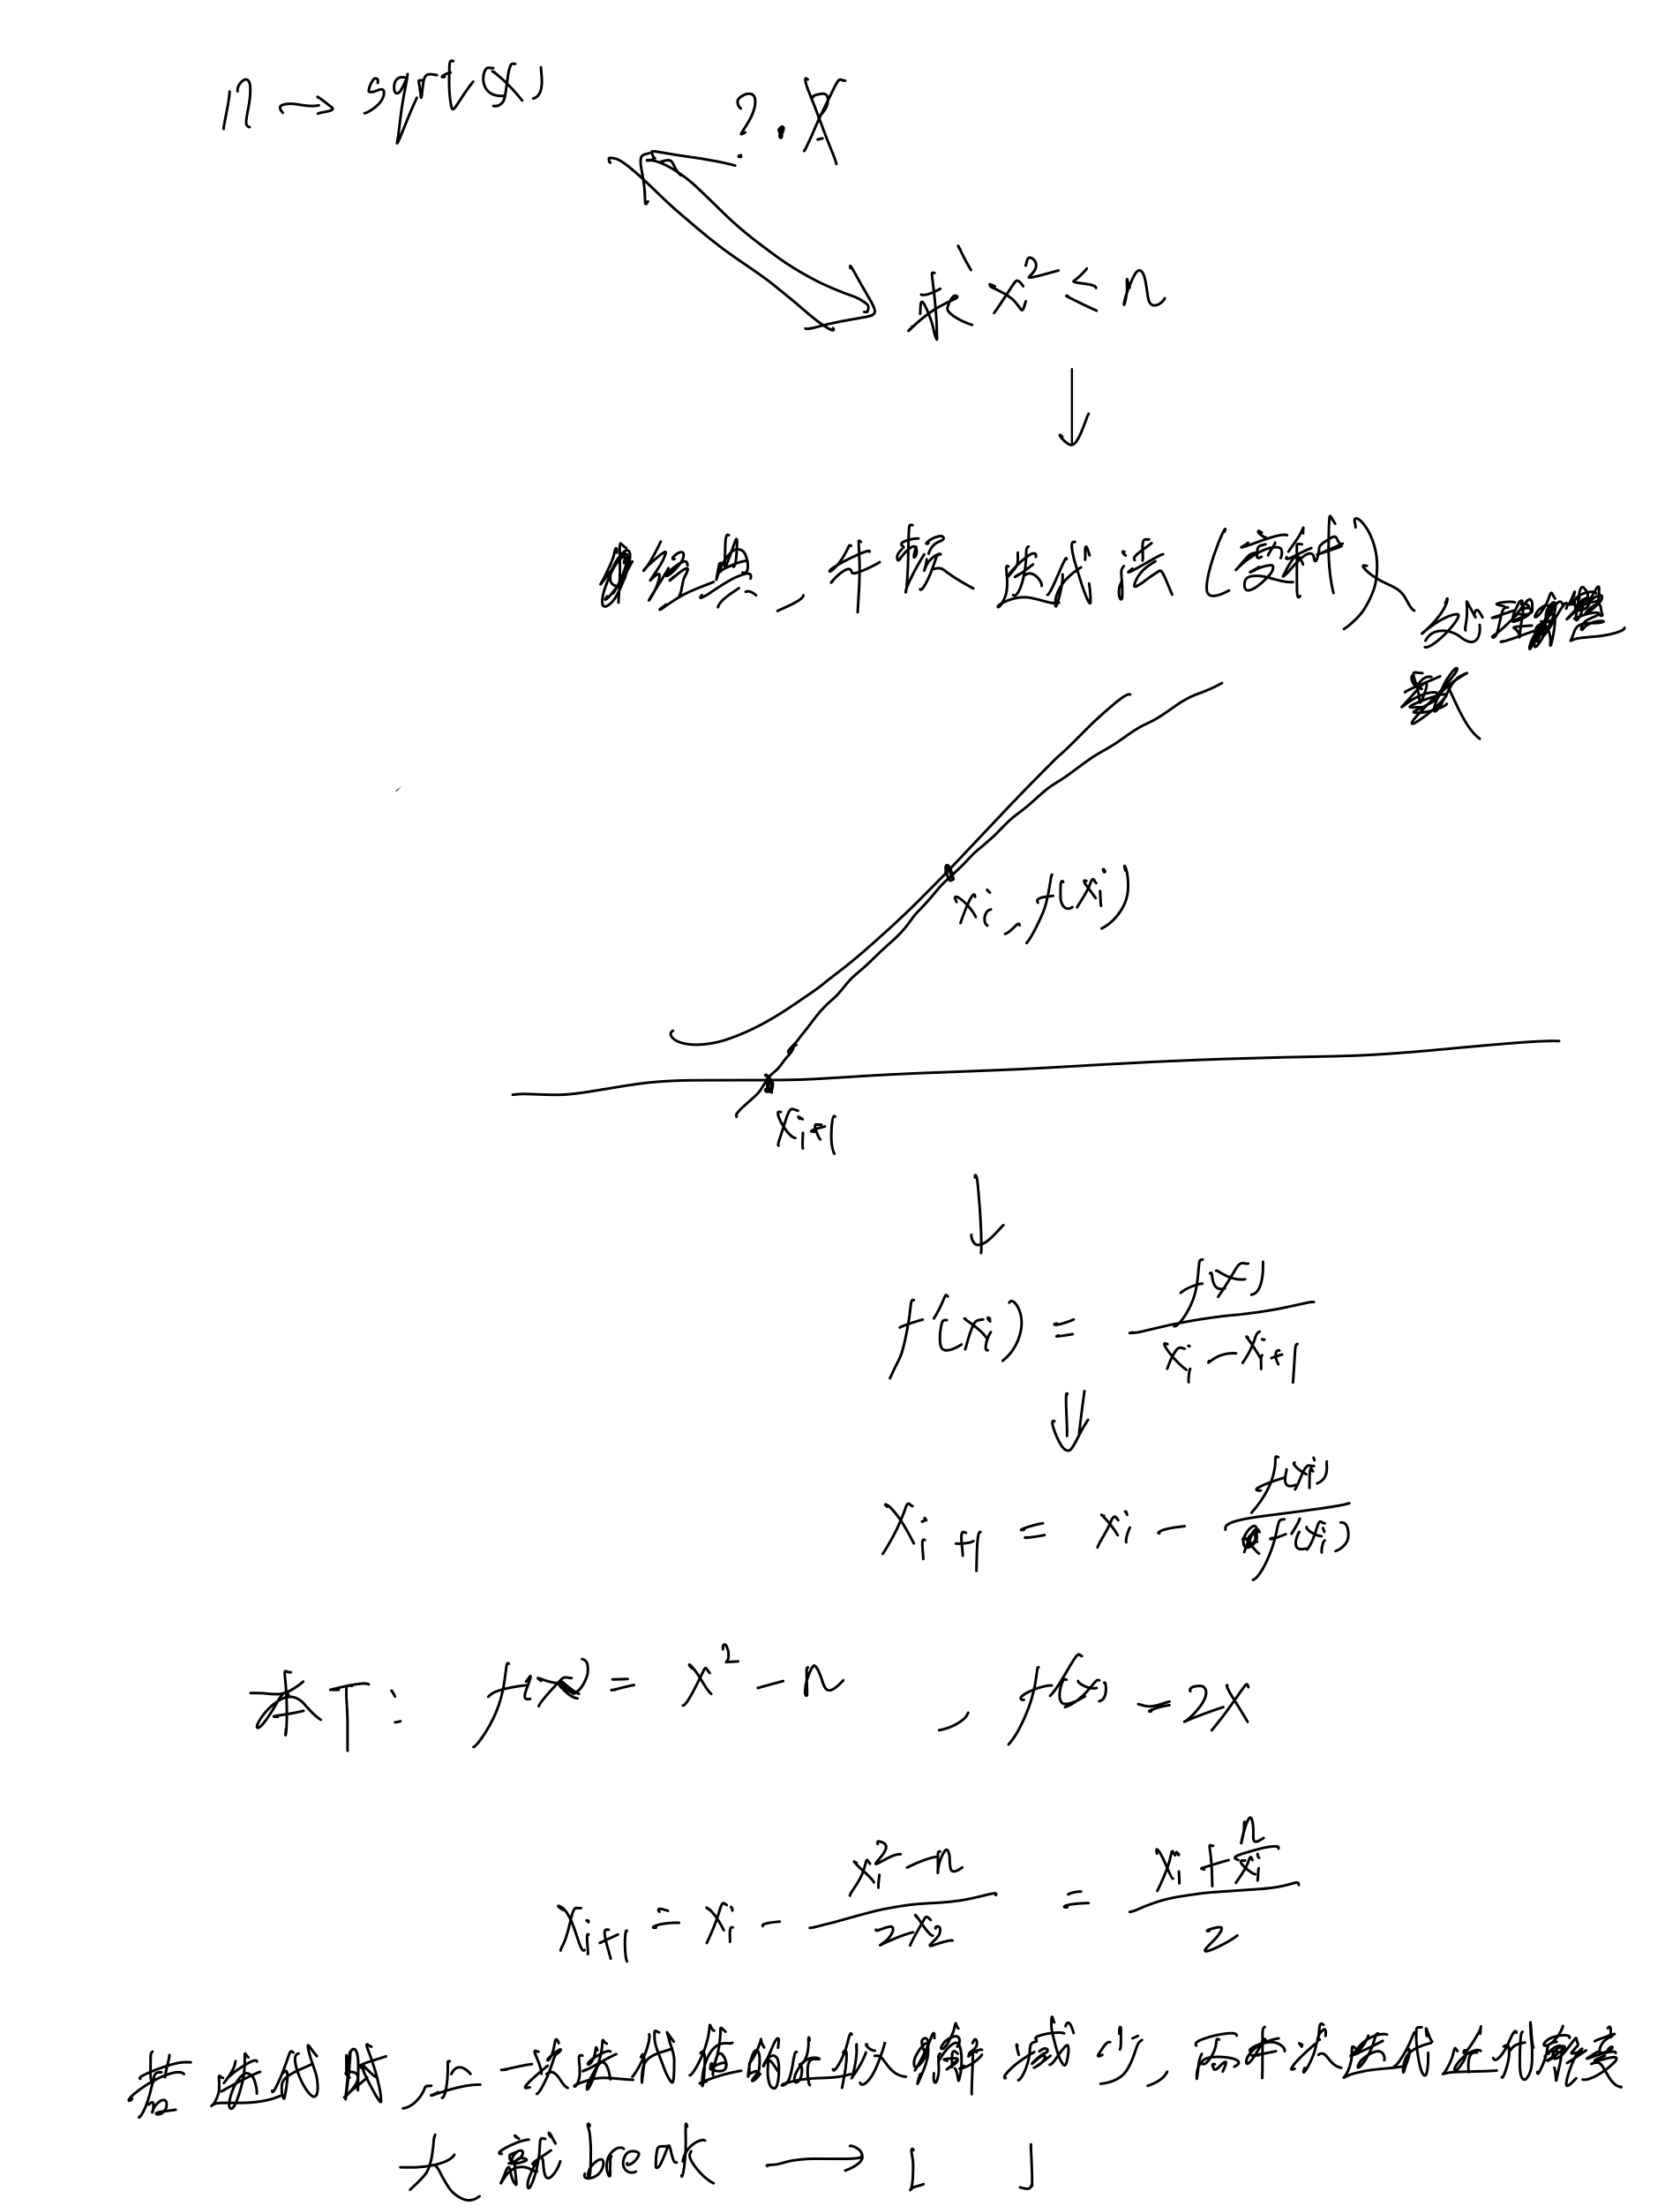 n → sqrt(x)
?. x
求 x² ≤ n
↓
经典, 牛顿迭代法 (变种)
处理整
数
xi, f(xi)
xi+1
↓
f'(xi) = f(x) / (xi - xi+1)
⇓
xi+1 = xi - f(xi) / f'(xi)
本T: f(x) = x² - n , f'(x) = 2x
xi+1 = xi - (xi² - n) / 2x2 = (xi + n/xi) / 2
若迭代时, 上一次迭代使得近似解减少, 而本次迭代近似解变
大就break → ⌊ ⌋